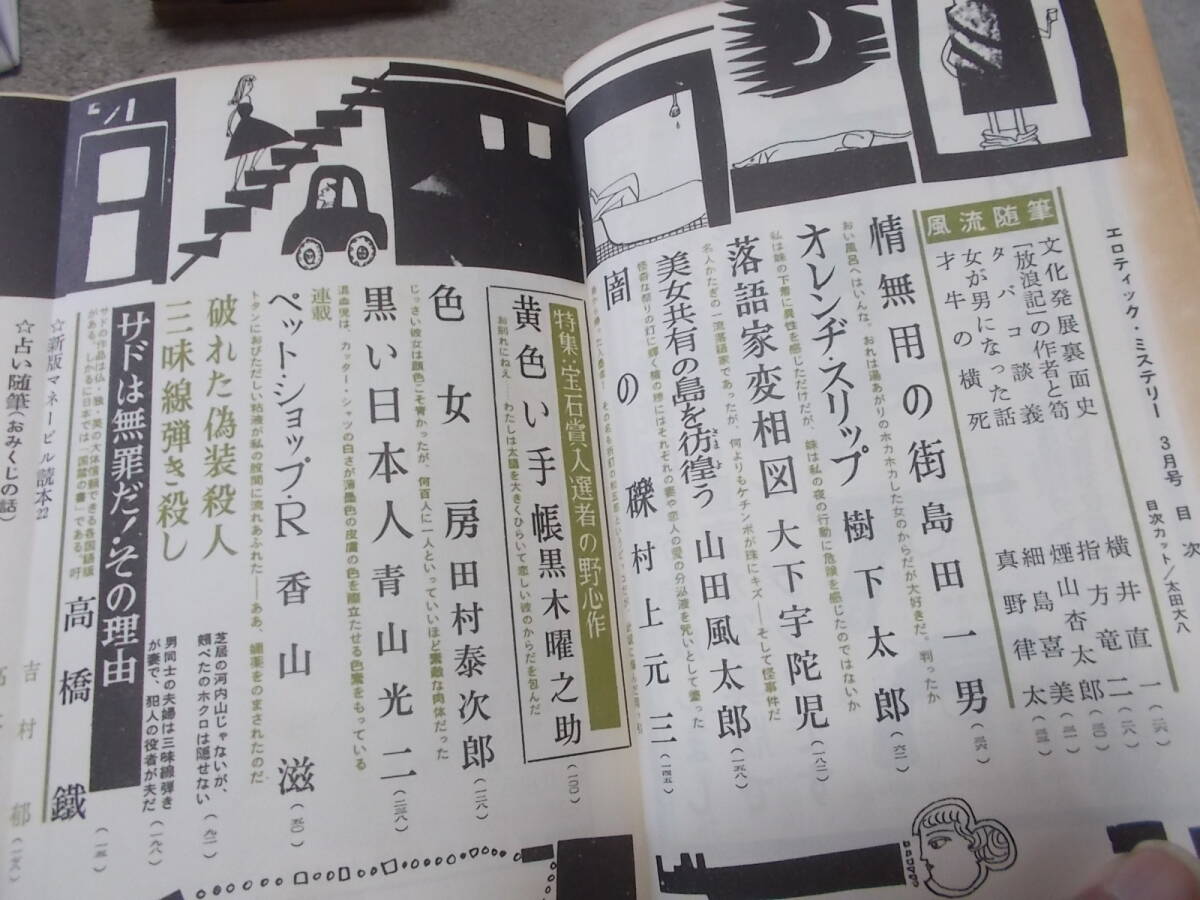 エロティック・ミステリー 3月号 目次
目次カット/太田大八
風流随筆
文化発展裏面史 横井直一
「放浪記」の作者と筍 指方竜二
タバコ談義 煙山杏太郎
女が男になった話 細島喜美
才牛の横死 真野律太
情無用の街 島田一男
おい風呂へはいんな。おれは湯あがりのホカホカした女のからだが大好きだ。判ったか
オレンヂ・スリップ 樹下太郎
私は妹の下着に異性を感じただけだが、妹は私の夜の行動に危険を感じたのではないか
落語家変相図 大下宇陀児
名人かたぎの一流落語家であったが、何よりもケチンボが珠にキズ――そして怪事件だ
美女共有の島を彷徨う 山田風太郎
さまよ
闇の礫 村上元三
特集・宝石賞入選者の野心作
黄色い手帳 黒木曜之助 (一〇〇)
お別れにねえ――わたしは太腿を大きくひらいて恋しい彼のからだを包んだ
色女房 田村泰次郎 (一二八)
じっさい彼女は顔色こそ青かったが、何百人に一人といっていいほど素敵な肉体だった
黒い日本人 青山光二 (二三八)
混血児は、カッター・シャツの白さが薄墨色の皮膚の色を際立たせる色素をもっている
連載
ペット・ショップ・R 香山滋 (五〇)
トタンにおびただしい粘液が私の股間に流れあふれた――ああ、媚薬をのまされたのだ
破れた偽装殺人
芝居の河内山じゃないが、
頬ぺたのホクロは隠せない
三味線弾き殺し
男同士の夫婦は三味線弾き
が妻で、犯人の役者が夫だ (一九八)
サドは無罪だ!その理由 高橋鐵 (一五)
サドの作品は仏・独・英の大体信頼できる各国語版
がある。しかるに日本では「国禁の書」である。吁
☆新版マネービル読本22
☆占い随筆(おみくじの話) 吉村郁